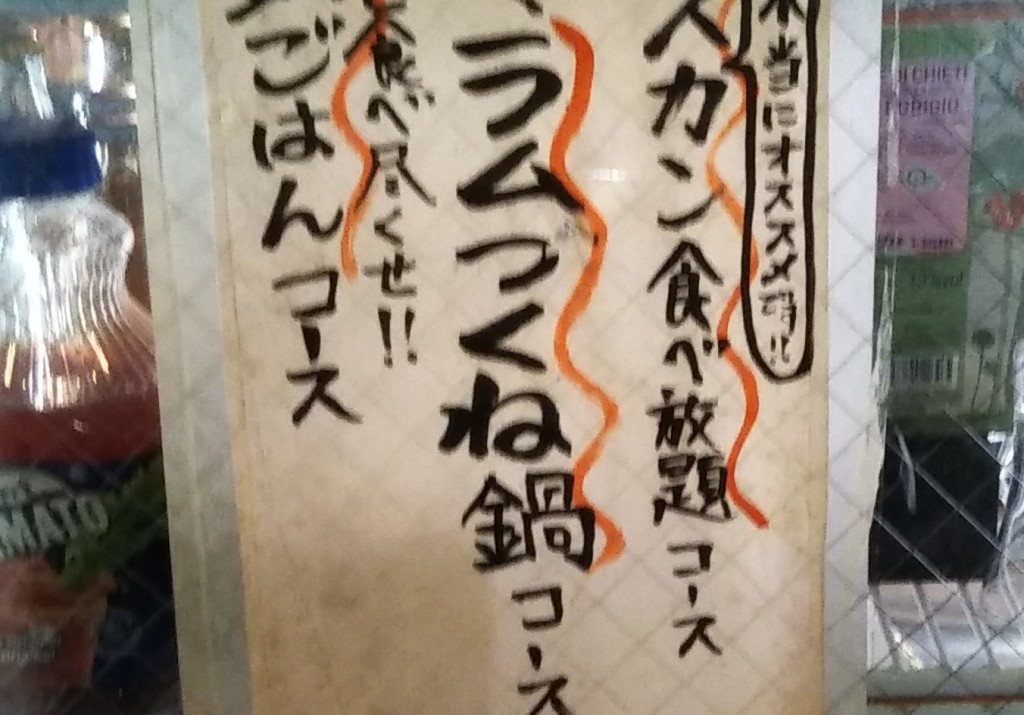 本当にオススメ鍋!!
スカン食べ放題コース
ラムつくね鍋コース
食べ尽くせ!!
ごはんコース
MATO